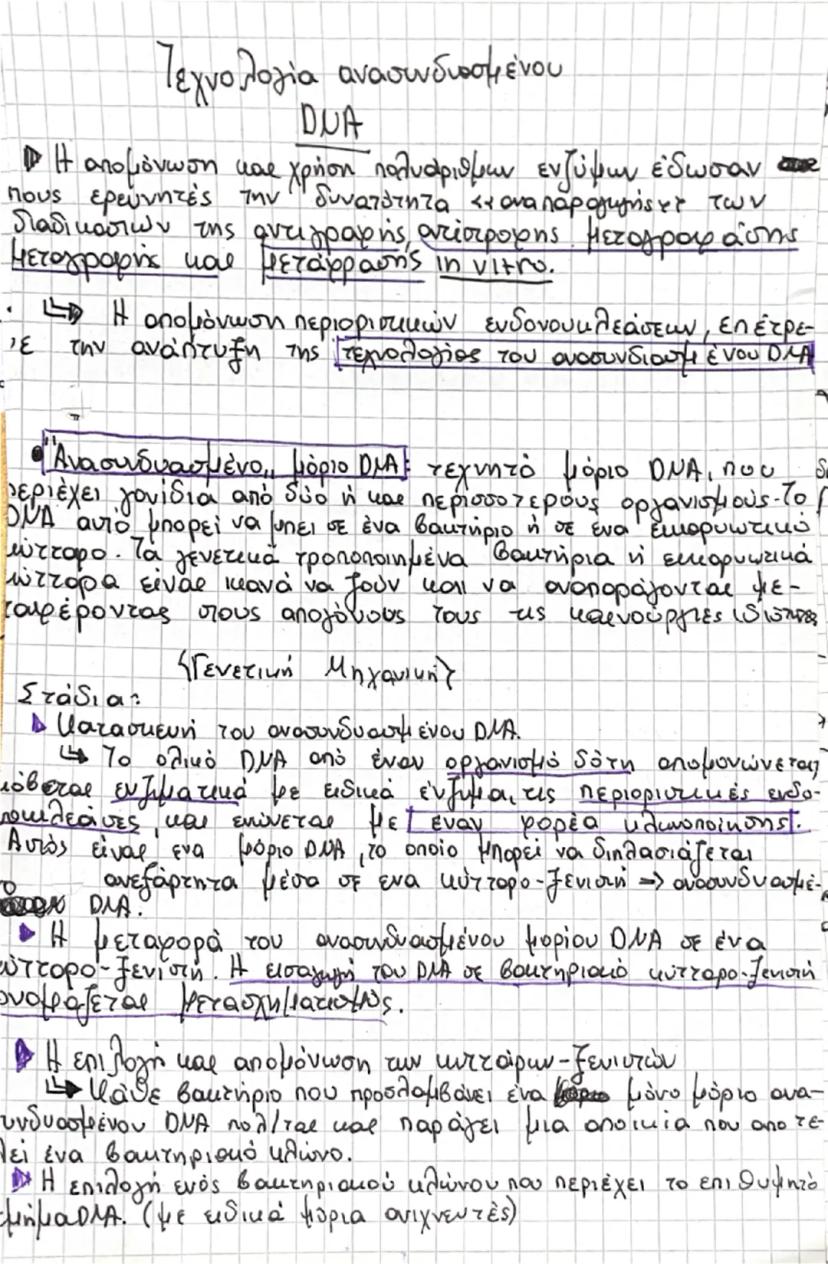 Τεχνολογία ανασυνδυασμένου
DNA
Η απομόνωση και χρήση πολυάριθμων ενζύμων έδωσαν
τους ερευνητές την δυνατότητα «αναπαραγωγής» των
διαδικασιών της αντιγραφής, αντίστροφης μεταγραφάσης
μεταγραφής και μετάφρασης in vitro.
Η απομόνωση περιοριστικών ενδονουκλεάσεων, επέτρε-
ψε την ανάπτυξη της τεχνολογίας του ανασυνδιασμένου DNA
"Ανασυνδυασμένο" μόριο DNA: τεχνητό μόριο DNA, που
περιέχει γονίδια από δύο ή και περισσότερους οργανισμούς. Το
DNA αυτό μπορεί να μπει σε ένα βακτήριο ή σε ένα ευκαρυωτικό
κύτταρο. Τα γενετικά τροποποιημένα βακτήρια ή ευκαρυωτικά
κύτταρα είναι ικανά να ζούν και να αναπαράγονται με-
ταφέροντας στους απογόνους τους τις καινούργιες ιδιότητες
{Γενετική Μηχανική}
Στάδια:
Κατασκευή του ανασυνδυασμένου DNA.
Το ολικό DNA από έναν οργανισμό δότη απομονώνεται,
κόβεται ενζυματικά με ειδικά ένζυμα, τις περιοριστικές ενδο-
νουκλεάσες, και ενώνεται με έναν φορέα κλωνοποίησης.
Αυτός είναι ένα μόριο DNA, το οποίο μπορεί να διπλασιάζεται
ανεξάρτητα μέσα σε ένα κύτταρο-ξενιστή => ανασυνδυασμέ-
νο DNA.
Η μεταφορά του ανασυνδυασμένου μορίου DNA σε ένα
κύτταρο-ξενιστή. Η εισαγωγή του DNA σε βακτηριακό κύτταρο-ξενιστή
ονομάζεται μετασχηματισμός.
Η επιλογή και απομόνωση των κυττάρων-ξενιστών
Κάθε βακτήριο που προσλαμβάνει ένα μόνο μόριο ανα-
συνδυασμένου DNA πολ/ται και παράγει μια αποικία που αποτε-
λεί ένα βακτηριακό κλώνο.
Η επιλογή ενός βακτηριακού κλώνου που περιέχει το επιθυμητό
τμήμα DNA. (με ειδικά μόρια ανιχνευτές)